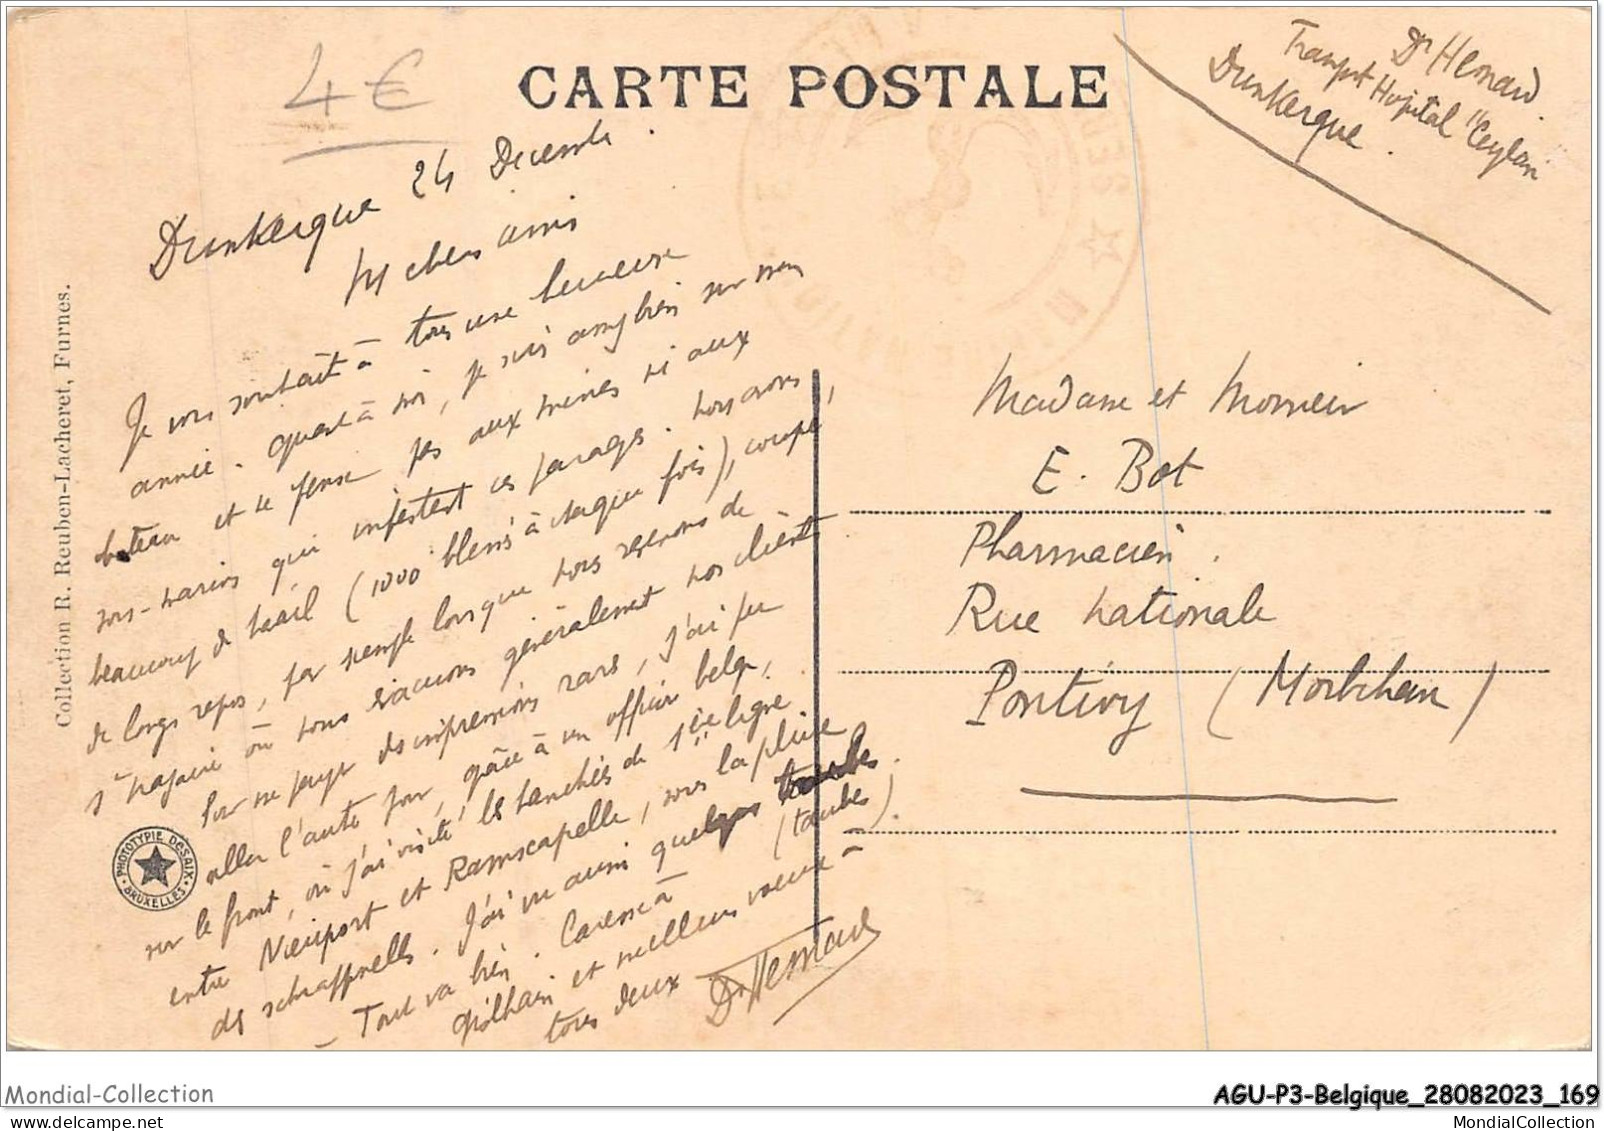 CARTE POSTALE
4 €
Dr Hesnard
Transport Hopital "Ceylan
Dunkerque.
Dunkerque 24 Decembre.
Mes chers amis
Je vous souhaite à tous une heureuse
année. Quant à moi, je suis assez bien sur mon
bateau et ne pense pas aux mines ni aux
sous-marins qui infestent ces parages. Nous avons
beaucoup de travail (1000 blessés à chaque fois), coupé,
de longs repos, par exemple lorsque nous revenons de
où nous évacuons généralement nos clients
Pour me payer des impressions rares, j'ai pu
aller l'autre jour, grâce à un officier belge,
sur le front, où j'ai visité les tranchées de 1ère ligne
entre Nieuport et Ramscapelle, sous la pluie
des schrappnells. J'ai vu aussi quelques taubes.
(taubes).
– Tout va bien. Caresse à
et meilleurs voeux à
tous deux Dr Hesnard
Madame et Monsieur
E. Bot
Pharmacien.
Rue Nationale
Pontivy (Morbihan)
Collection R. Reuben-Lacheret, Furnes.
PHOTOTYPIE DESAIX
BRUXELLES
Mondial-Collection
AGU-P3-Belgique_28082023_169
mondial-collection
MondialCollection